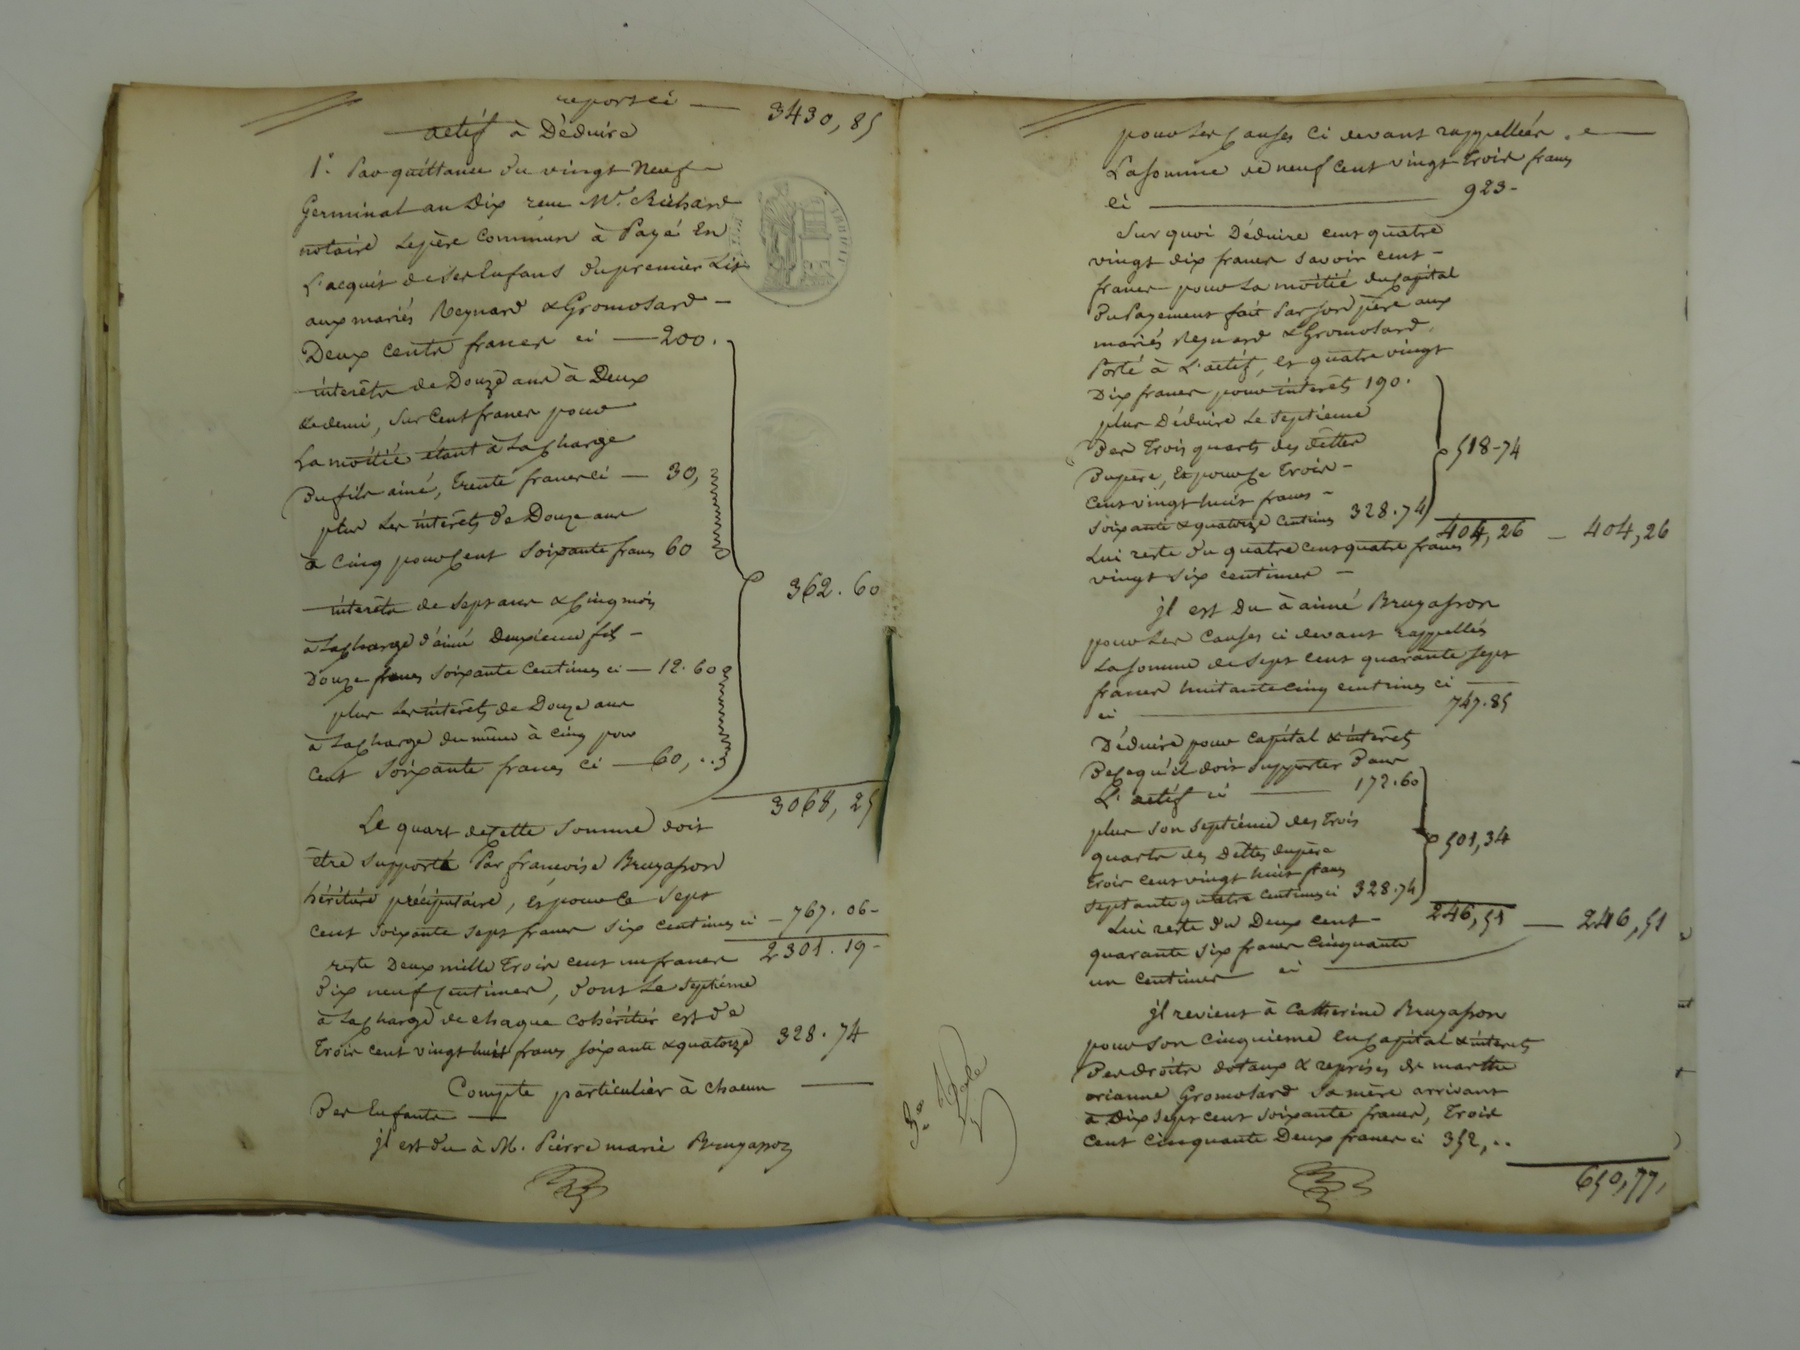 report ci — 3430,85
actif à Déduire
1°. Par quittance du vingt neuf
Germinal an Dix reçue Mr. Richard
notaire le père commun à Payé En
L'acquit de ses Enfans du premier Lit
aux mariés Reynard & Gromolard —
Deux cents francs ci — 200.
intérêts de Douze ans à Deux
& demi, sur Cent francs pour
La moitié étant à La Charge
Du fils ainé, trente francs ci — 30,
plus les intérêts de Douze ans
à Cinq pour Cent Soixante francs 60
362.60
intérêts de Sept ans & Cinq mois
à La Charge d'aimé Deuxième fils —
Douze francs soixante Centimes ci — 12.60
plus les intérêts de Douze ans
à La Charge du même à cinq pour
Cent Soixante francs ci — 60,..
3068,25
Le quart de Cette Somme doit
être supporté Par françoise Bruyasson
héritière préciputaire, Et pour Ce Sept
cent soixante sept francs six centimes ci — 767.06-
reste Deux mille trois cent un francs 2301.19-
Dix neuf Centimes, dont Le Septième
à La Charge de chaque cohéritier est de
trois cent vingt huit francs soixante & quatorze 328.74
Compte particulier à chacun —
Des Enfants —
jl est du à M. Pierre marie Bruyasson
pour les Causes Ci devant rappellées. e —
La Somme de neuf Cent vingt trois francs
ci — 923-
Sur quoi Déduire cent quatre
vingt dix francs savoir cent —
francs pour La moitié du Capital
Du Payement fait Par son père aux
mariés Reynard & Gromolard,
Porté à L'actif, et quatre vingt
Dix francs pour intérêts 190.
plus Déduire Le Septième
Des trois quarts des dettes
Du père, Et pour Ce trois —
Cent vingt huit francs —
soixante & quatorze Centimes 328.74
518-74
Lui reste du quatre cent quatre francs 404,26 — 404,26
vingt six centimes —
jl est Du à aimé Bruyasson
pour les Causes ci devant rappellés
La somme de Sept Cent quarante Sept
francs huitante Cinq centimes ci —
ci — 747.85
Déduire pour Capital & intérêts
De Ce qu'il doit supporter Dans
L'actif ci — 172.60
plus son septième des trois
quarts des Dettes du père
trois cent vingt huit francs
septante quatre centimes ci 328.74
501,34
Lui reste du Deux cent — 246,51 — 246,51
quarante Six francs Cinquante
un Centimes — ci —
jl revient à Catherine Bruyasson
pour son Cinquième En Capital & intérêts
Des droits dotaux & reprises de marthe
orianne Gromolard sa mère arrivant
à Dix sept cent soixante francs, trois
cent Cinquante Deux francs ci 352,..
650,77,